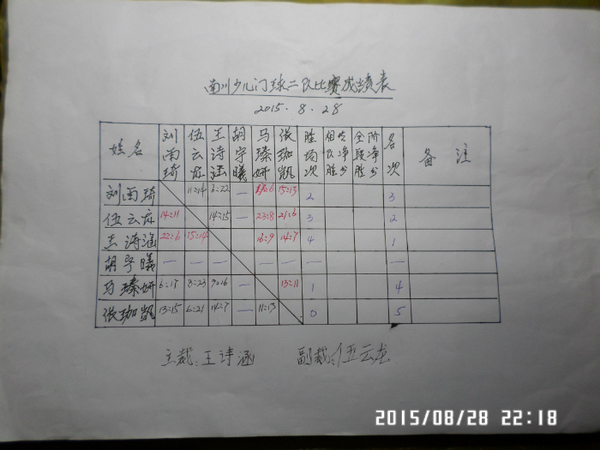 南川少儿门球二队比赛成绩表
2015.8.28
姓名 刘雨琦 伍云龙 王诗涵 胡宇曦 马瑧妍 张珈凯 胜场次 名次 备注
刘雨琦 11=14 6=22 — 15=13 2 3
伍云龙 14=11 14=15 — 23=8 21=6 3 2
王诗涵 22=6 15=14 — 16=9 14=7 4 1
胡宇曦 — — — — — — — —
马瑧妍 6=17 8=23 9=16 — 13=11 1 4
张珈凯 13=15 6=21 14=7 — 11=13 0 5
主裁:王诗涵 副裁:伍云龙
2015/08/28 22:18